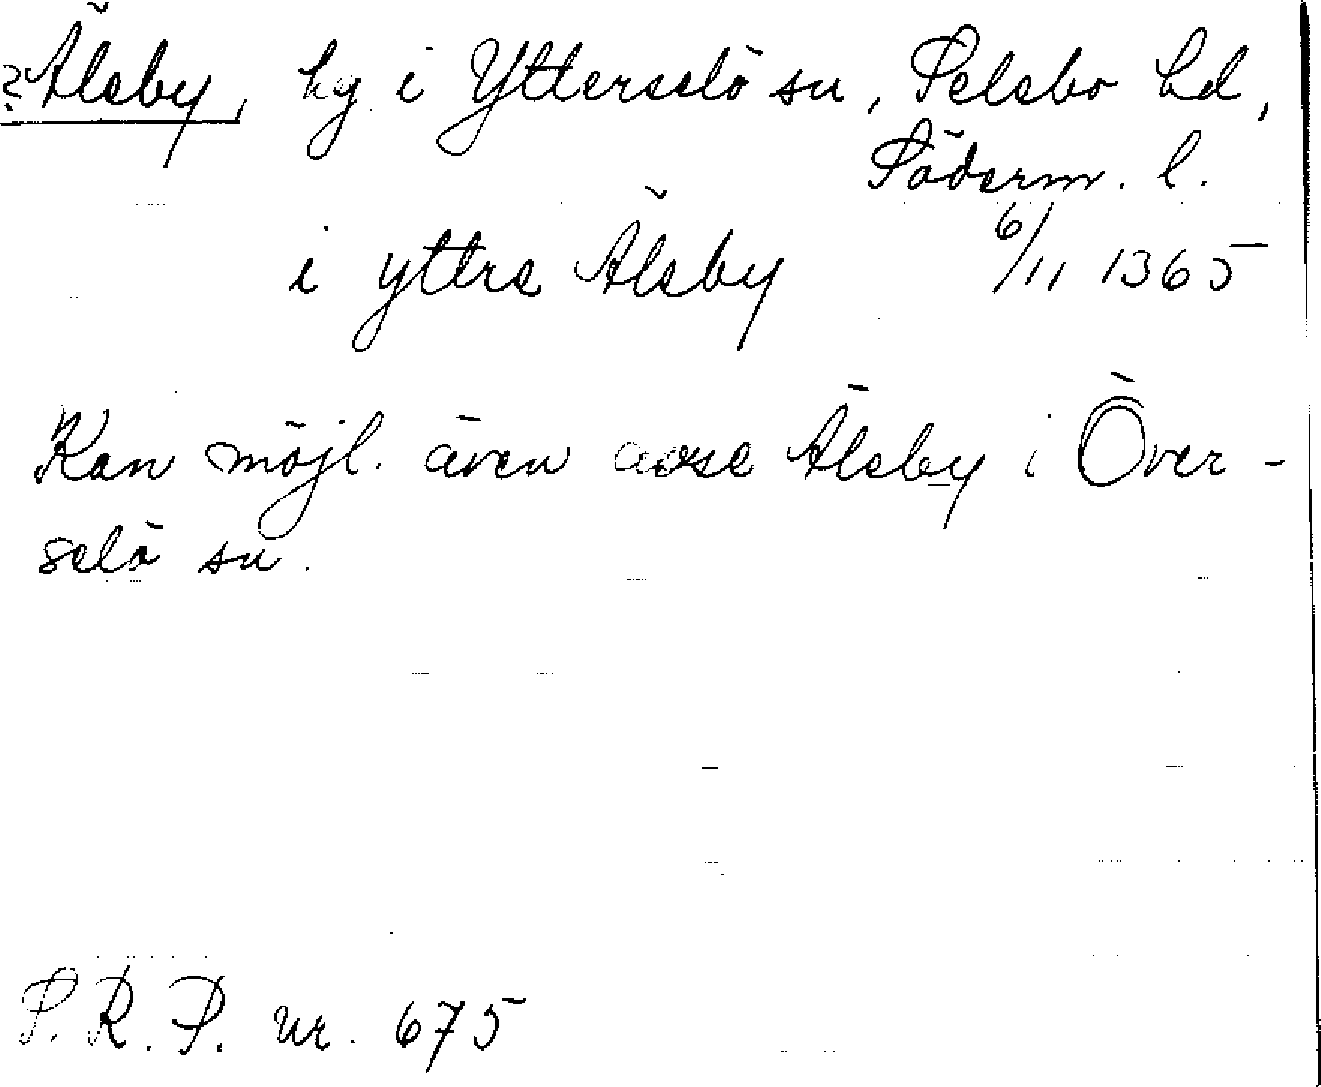 ?Älsby, by i Ytterselö sn, Selebo hd,
Söderm. l.
i yttra Älsby 6/11 1365
Kan möjl. även avse Älsby i Över-
selö sn.
S. R. P. nr. 675